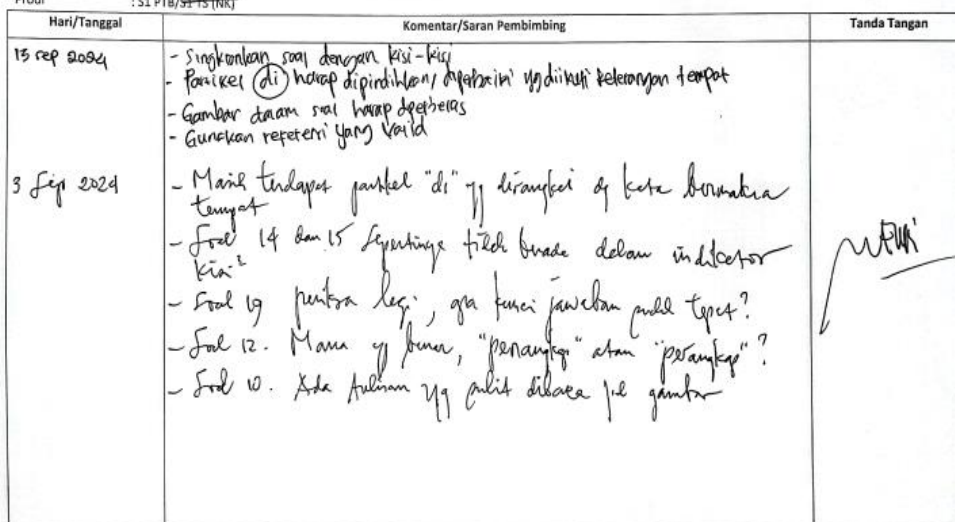 Prodi : S1 PTB/S1 TS (NK)
Hari/Tanggal Komentar/Saran Pembimbing Tanda Tangan
13 sep 2024 - Singkronkan soal dengan kisi-kisi
- Partikel di harap dipindihkan/diperbaiki yg diikuti keterangan tempat
- Gambar dalam soal harap diperjelas
- Gunakan referensi yang valid
3 Sep 2024 - Masih terdapat partikel "di" yg dirangkai dg kata bermakna
tempat
- Soal 14 dan 15 sepertinya tidak berada dalam indikator
kisi-2
- Soal 19 periksa lagi, apa kunci jawaban sudah tepat?
- Soal 12. Mana yg benar, "penangkap" atau "perangkap"?
- Soal 10. Ada tulisan yg sulit dibaca gambar